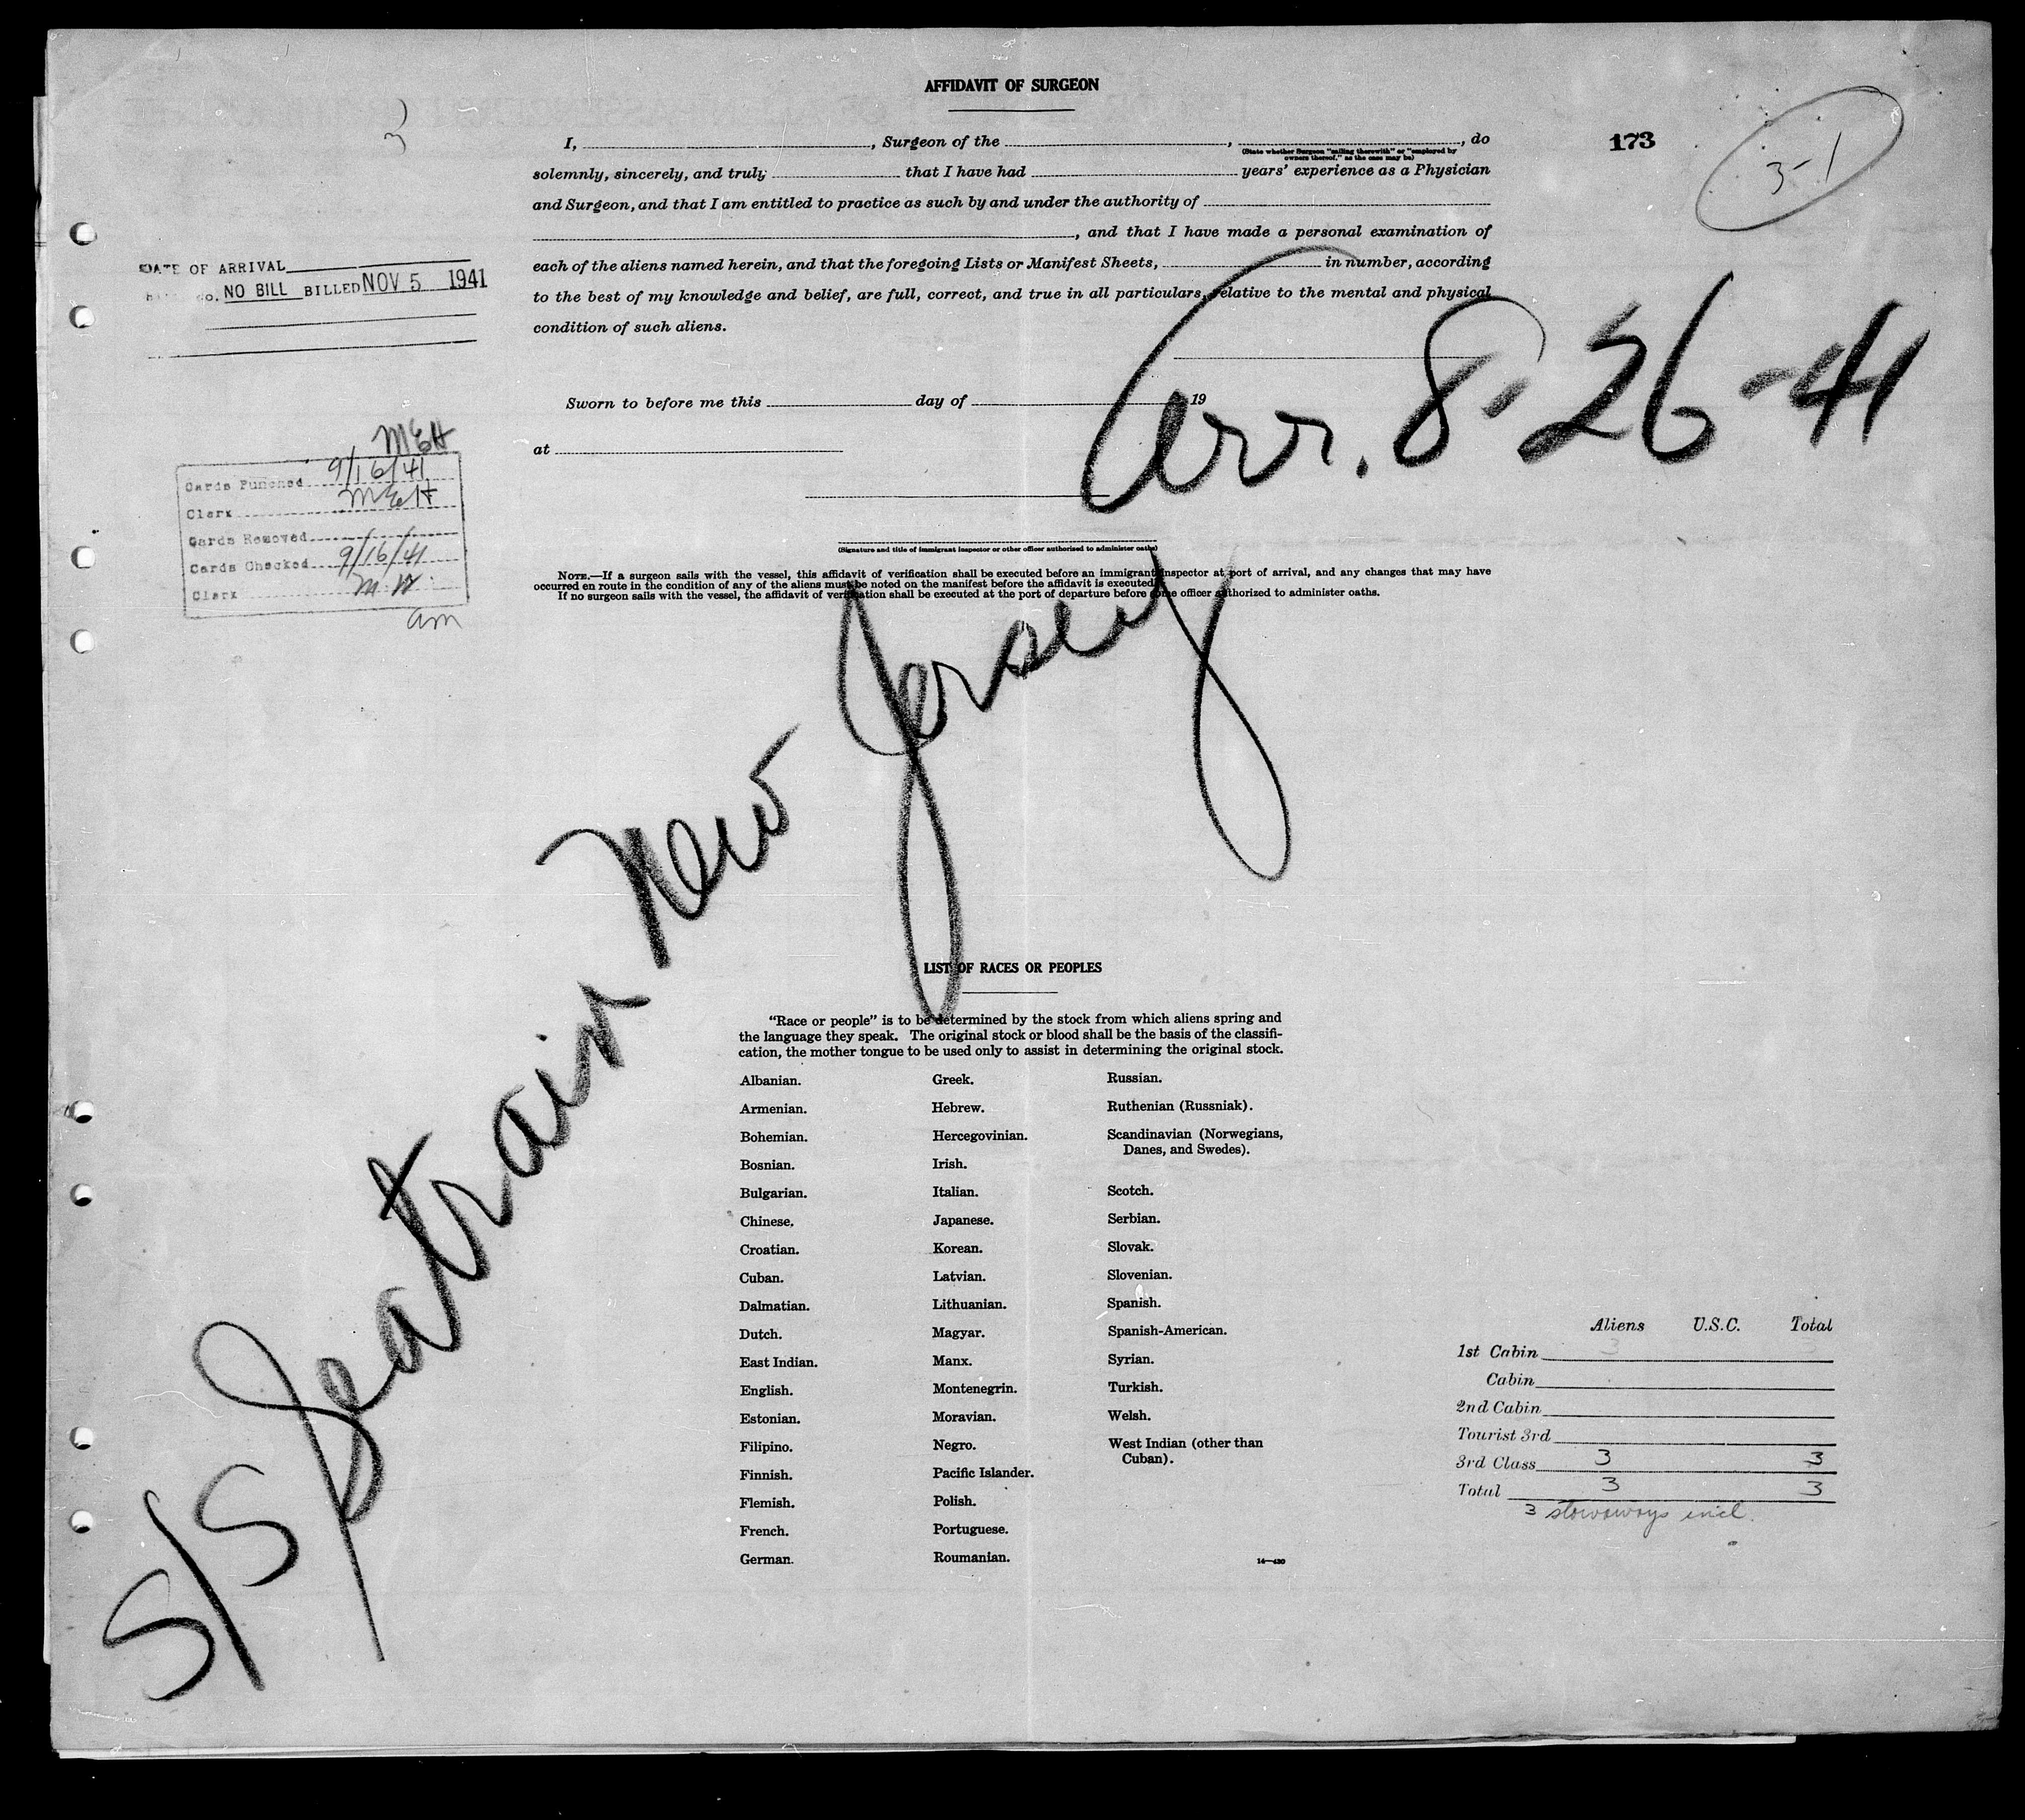 AFFIDAVIT OF SURGEON
3
173
3-1
I, , Surgeon of the , , do
(State whether Surgeon "sailing therewith" or "employed by
owners thereof," as the case may be)
solemnly, sincerely, and truly that I have had years' experience as a Physician
and Surgeon, and that I am entitled to practice as such by and under the authority of
, and that I have made a personal examination of
each of the aliens named herein, and that the foregoing Lists or Manifest Sheets, in number, according
to the best of my knowledge and belief, are full, correct, and true in all particulars, relative to the mental and physical
condition of such aliens.
DATE OF ARRIVAL
No. NO BILL BILLED NOV 5 1941
Arr. 8-26-41
Sworn to before me this day of 19
at
(Signature and title of immigrant inspector or other officer authorized to administer oaths)
MEH
Cards Punched 9/16/41
Clerk MEH
Cards Removed
Cards Checked 9/16/41
Clerk
am
NOTE.—If a surgeon sails with the vessel, this affidavit of verification shall be executed before an immigrant inspector at port of arrival, and any changes that may have
occurred en route in the condition of any of the aliens must be noted on the manifest before the affidavit is executed.
If no surgeon sails with the vessel, the affidavit of verification shall be executed at the port of departure before some officer authorized to administer oaths.
S/S Seatrain New Jersey
LIST OF RACES OR PEOPLES
"Race or people" is to be determined by the stock from which aliens spring and
the language they speak. The original stock or blood shall be the basis of the classifi-
cation, the mother tongue to be used only to assist in determining the original stock.
Albanian.
Armenian.
Bohemian.
Bosnian.
Bulgarian.
Chinese.
Croatian.
Cuban.
Dalmatian.
Dutch.
East Indian.
English.
Estonian.
Filipino.
Finnish.
Flemish.
French.
German.
Greek.
Hebrew.
Hercegovinian.
Irish.
Italian.
Japanese.
Korean.
Latvian.
Lithuanian.
Magyar.
Manx.
Montenegrin.
Moravian.
Negro.
Pacific Islander.
Polish.
Portuguese.
Roumanian.
Russian.
Ruthenian (Russniak).
Scandinavian (Norwegians,
Danes, and Swedes).
Scotch.
Serbian.
Slovak.
Slovenian.
Spanish.
Spanish-American.
Syrian.
Turkish.
Welsh.
West Indian (other than
Cuban).
14—430
Aliens U.S.C. Total
1st Cabin 3
Cabin
2nd Cabin
Tourist 3rd
3rd Class 3 3
Total 3 3
3 stowaways incl.